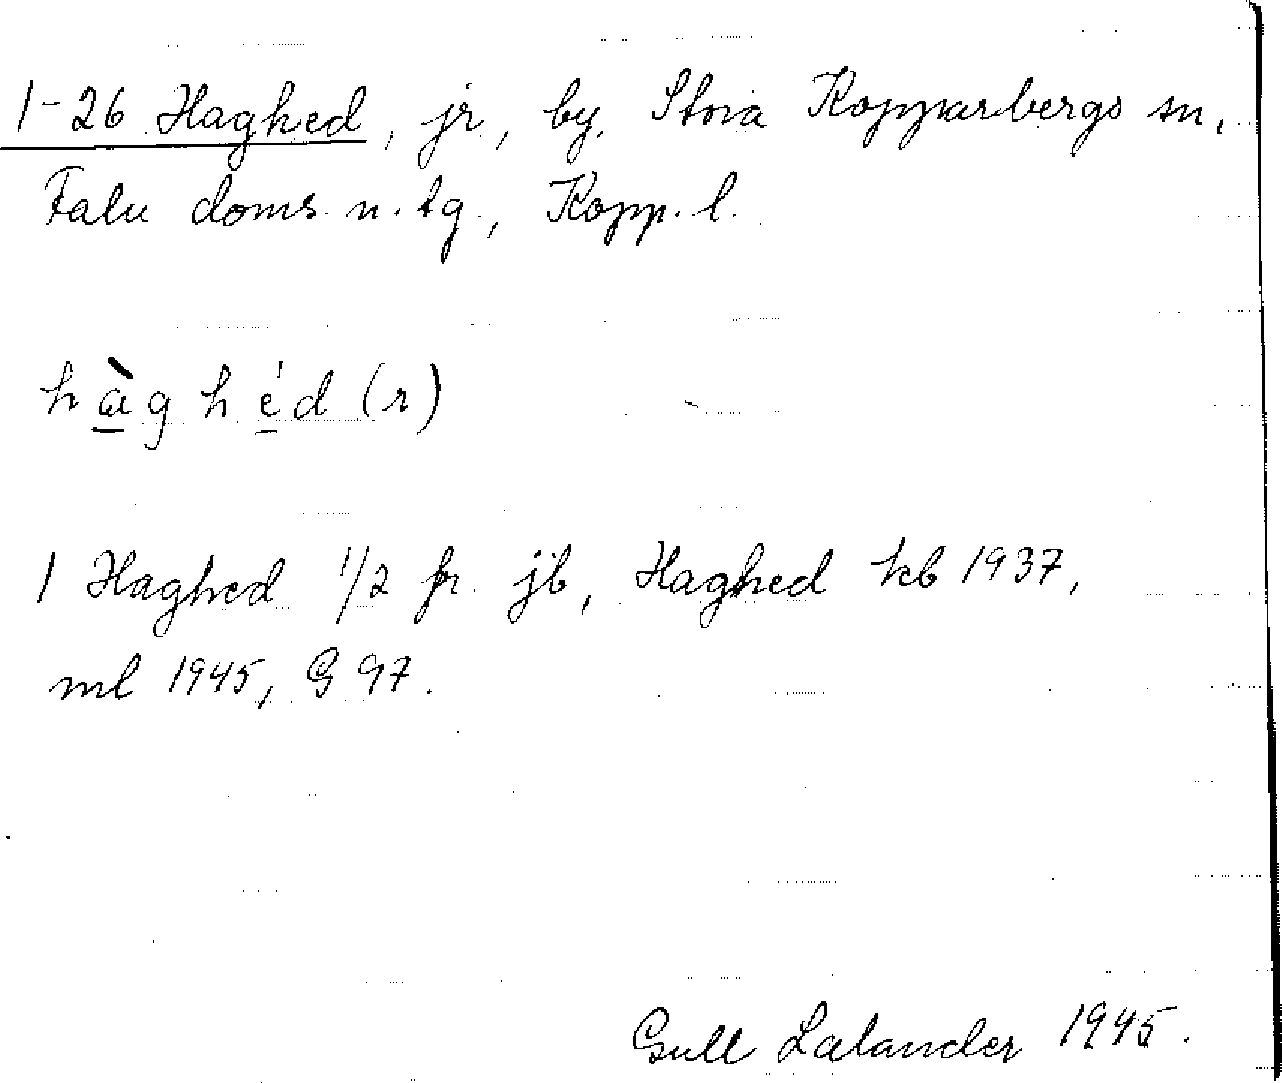 1-26 Haghed, jr, by, Stora Kopparbergs sn,
Falu doms. n. tg, Kopp. l.
hàg héd (r)
1 Haghed 1/2 fr. jb, Haghed kb 1937,
ml 1945, G 97.
Gull Lalander 1945.